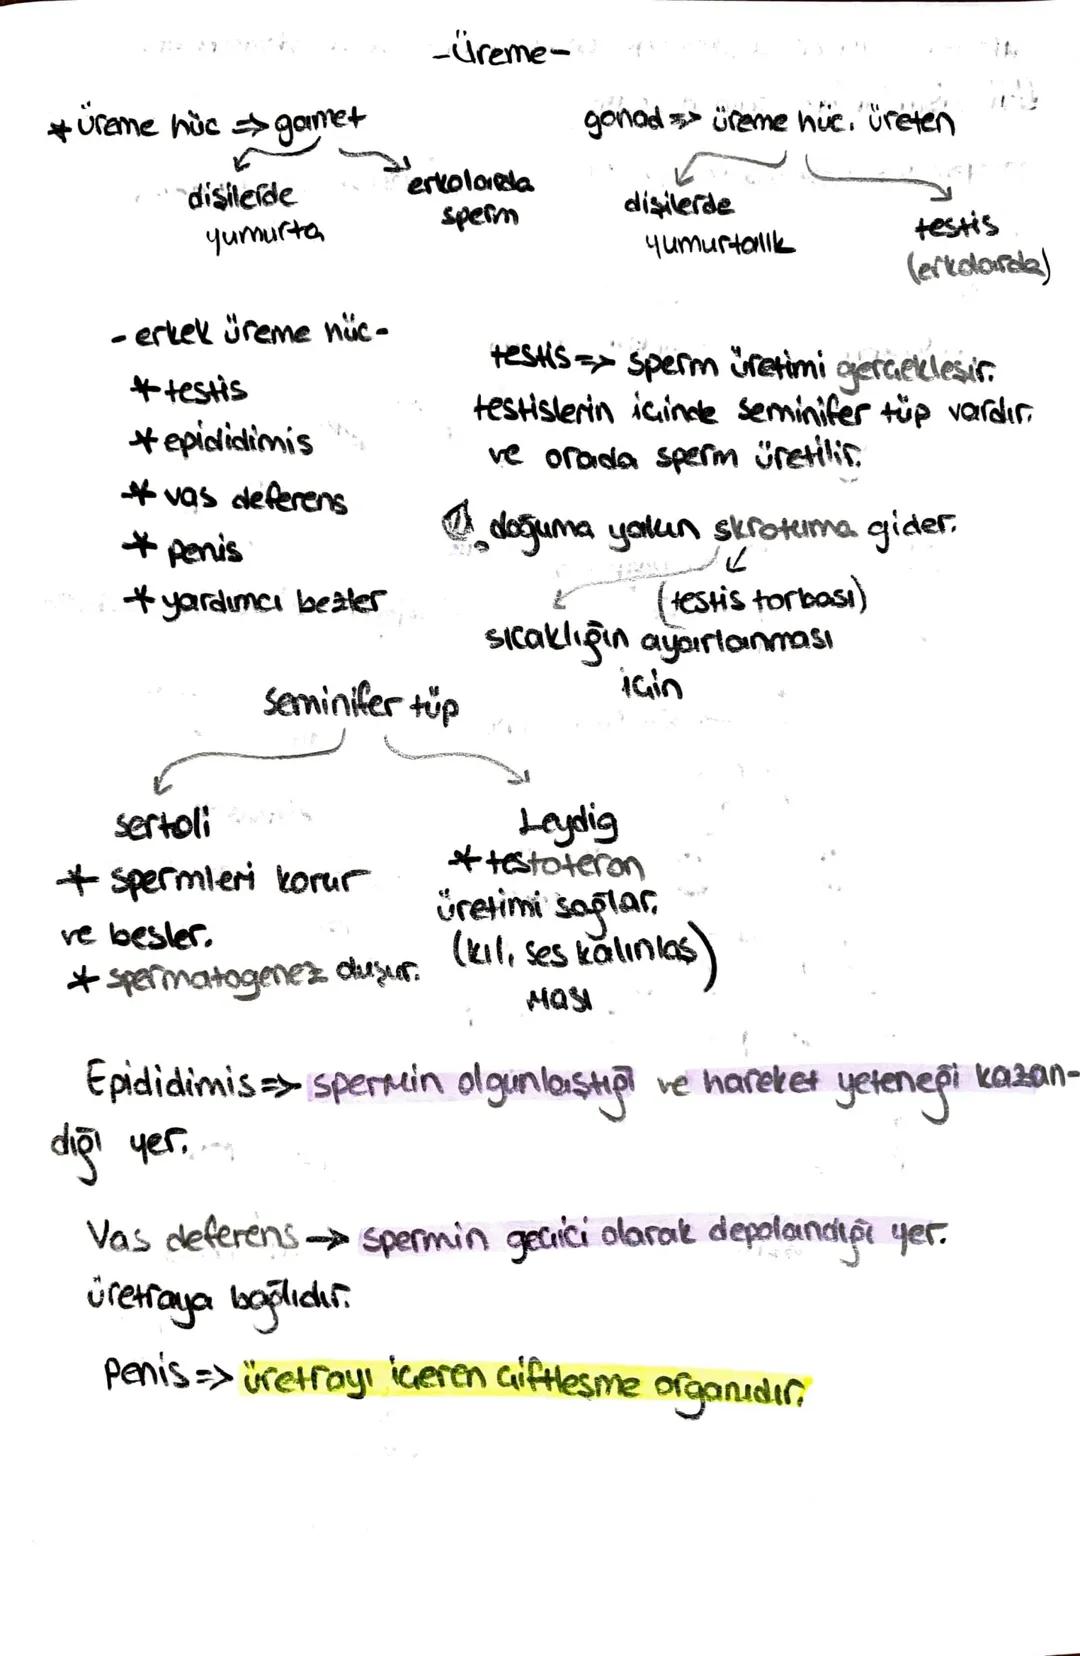 -Üreme-
* üreme hüc => gamet
dişilerde
yumurta
erkolarda
sperm
gonad => üreme hüc. üreten
dişilerde
yumurtalık
testis
(erkolarda)
- erkek üreme hüc -
* testis
* epididimis
* vas deferens
* penis
* yardımcı bezler
testis => sperm üretimi gerçekleşir.
testislerin içinde seminifer tüp vardır.
ve orada sperm üretilir.
doğuma yakın skrotuma gider.
(testis torbası)
sıcaklığın ayarlanması
için
seminifer tüp
sertoli
* spermleri korur
ve besler.
* spermatogenez oluşur.
Leydig
* testoteron
üretimi sağlar.
(kıl, ses kalınlaş
ması)
Epididimis => spermin olgunlaştığı ve hareket yeteneği kazan-
dığı yer.
Vas deferens -> spermin geçici olarak depolandığı yer.
üretraya bağlıdır.
Penis => üretrayı içeren çiftleşme organıdır.